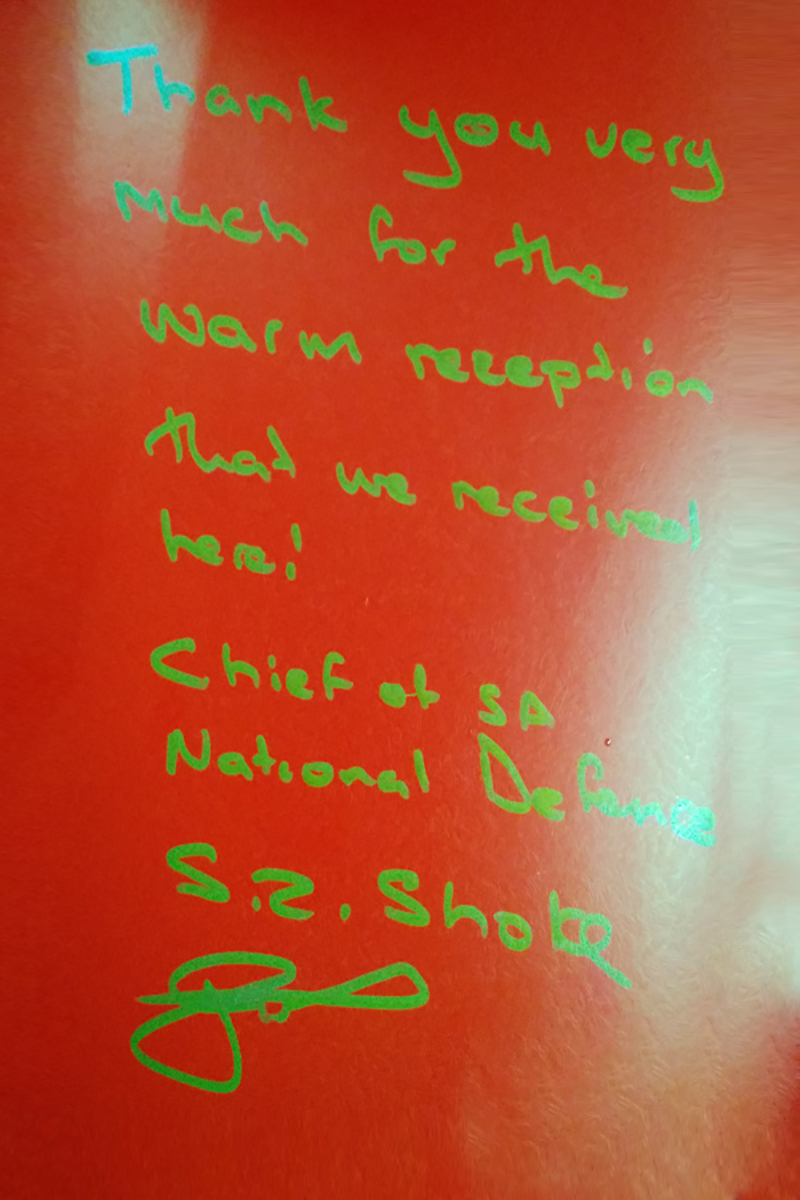 Thank you very
much for the
warm reception
that we received
here!
Chief of SA
National Defence
S.Z. Shoke